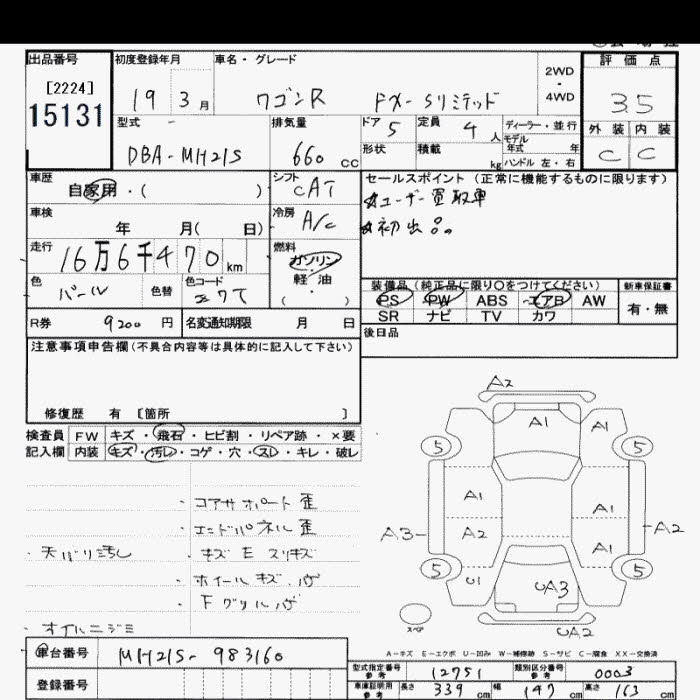 出品番号 初度登録年月 車名・グレード 評価点
[2224] 2WD
15131 19 3月 ワゴンR FX-Sリミテッド ・ 3.5
4WD
型式 排気量 ドア 5 定員 4人 ディーラー・並行 外装 内装
DBA-MH21S 660cc 形状 積載 kg モデル年式 年 C C
ハンドル 左・右
車歴 自家用・( ) シフト CAT セールスポイント (正常に機能するものに限ります)
車検 年 月( 日) 冷房 A/C ☆ユーザー買取車
☆初出品。
走行 16万6千470km 燃料 ガソリン
軽油
・
( )
色 パール 色替 色コード Z7T
装備品 (純正品に限り○をつけてください) 新車保証書
PS PW ABS エアB AW 有・無
SR ナビ TV カワ
R券 9200円 名変通知期限 月 日 後日品
注意事項申告欄(不具合内容等は具体的に記入して下さい)
修復歴 有 [箇所 ]
検査員 FW キズ・飛石・ヒビ割・リペア跡・×要
記入欄 内装 キズ・汚レ・コゲ・穴・スレ・キレ・破レ
・コアサポート歪
・エンドパネル歪
・天バリ汚し ・キズ E スリキズ
・ホイールキズ、ハゲ
・Fグリルハゲ
・オイルニジミ
A2
A1 A1
5 5
A1 A1
A3 A2 A2
A1
5 5
U1 UA3
スペア UA2
A-キズ E-エクボ U-凹み W-補修跡 S-サビ C-腐食 XX-交換済
車台番号 MH21S-983160
登録番号
型式指定番号 参考 12751 類別区分番号 参考 0003
車庫証明用 参考 長さ 339cm 幅 147cm 高さ 163cm